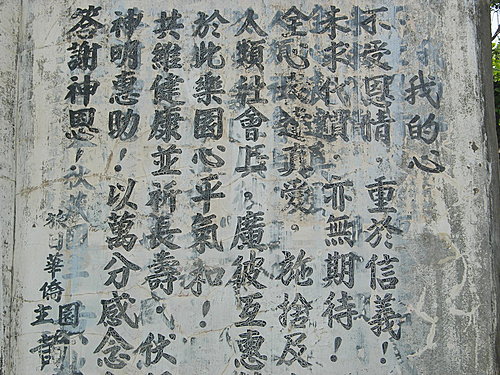 我的心
恩情，重於信義！
求代價，亦無期待！
全心真愛。施捨及
人類社會上，廣被互惠
於此樂園心平氣和！
共維健康並祈長壽，伏
神明惠助！以萬分感念
答謝神恩！
華僑園主